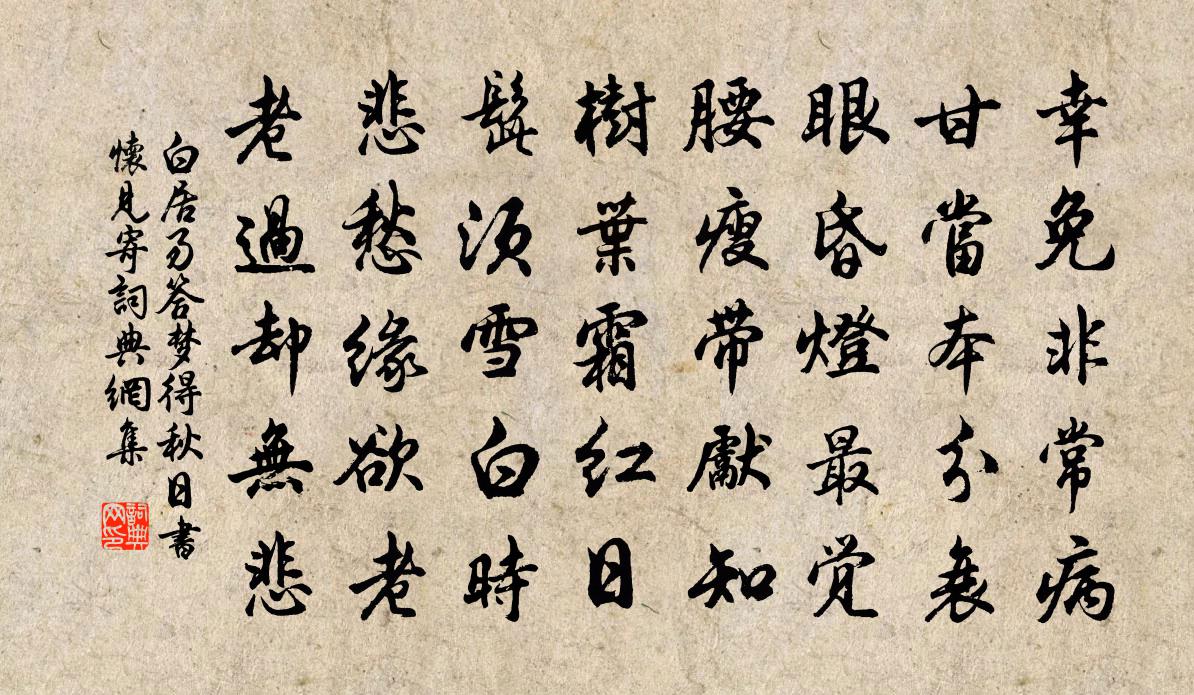 幸免非常病
甘當本分衰
眼昏燈最覺
腰瘦帶獻知
樹葉霜红日
髭須雪白時
悲愁緣欲老
老過却無悲
白居易答梦得秋日書
懷見寄詞典網集
詞典网印